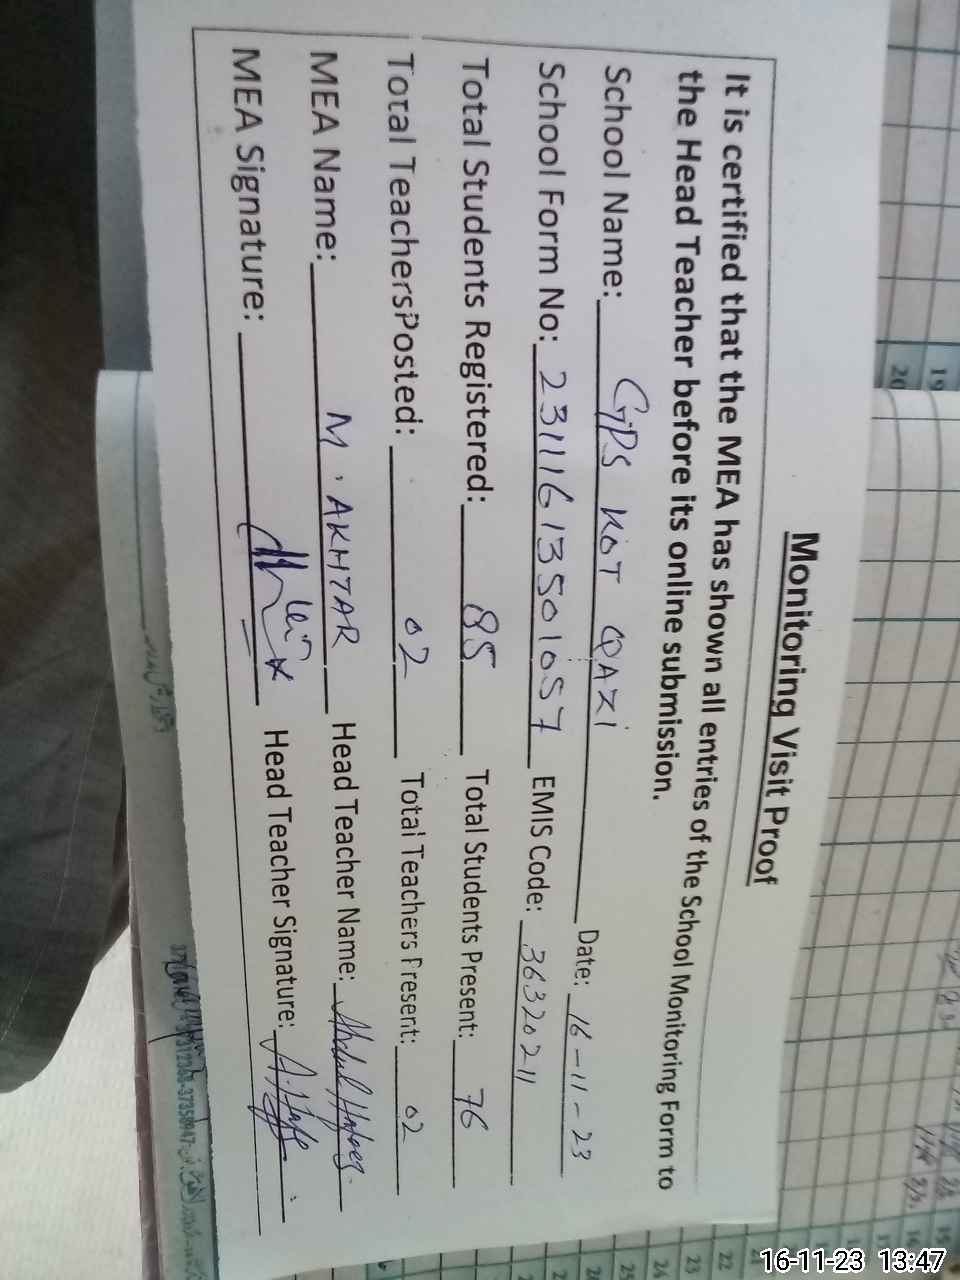 Monitoring Visit Proof
It is certified that the MEA has shown all entries of the School Monitoring Form to
the Head Teacher before its online submission.
School Name: GPS KOT QAZI Date: 16-11-23
School Form No: 23111613501057 EMIS Code: 36320211
Total Students Registered: 85 Total Students Present: 76
Total TeachersPosted: 02 Total Teachers Present: 02
MEA Name: M. AKHTAR Head Teacher Name: Abdul Hafeez
MEA Signature: Head Teacher Signature: A. Hafeez
19
20
22
23
24
25
16-11-23 13:47